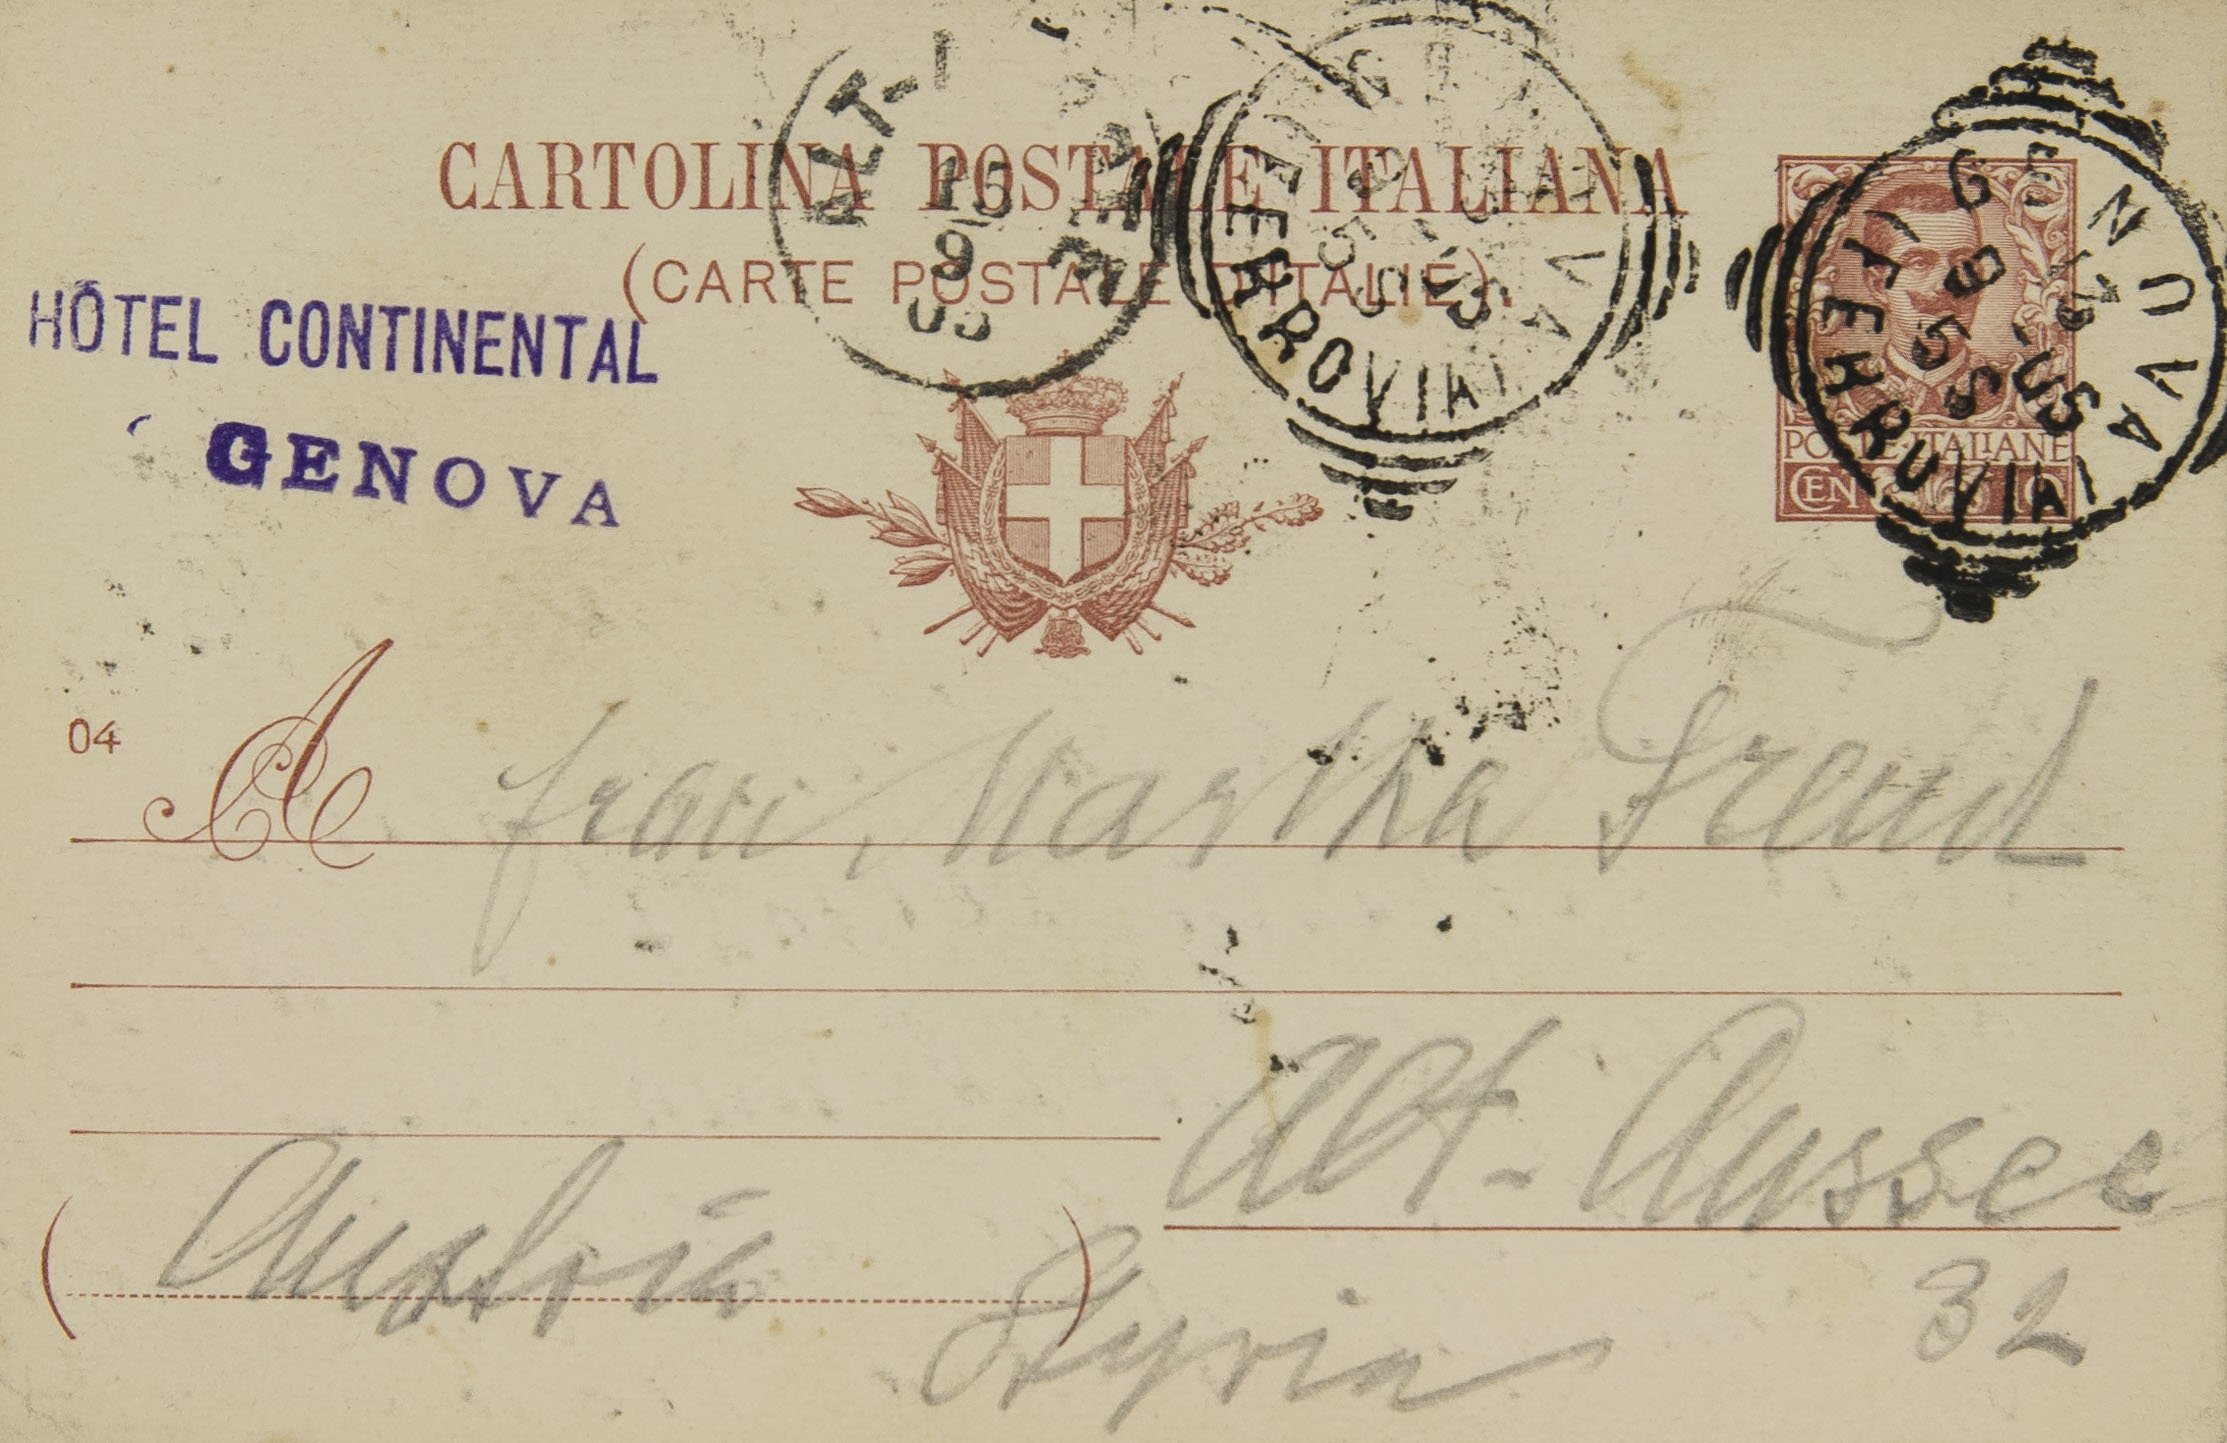 CARTOLINA POSTALE ITALIANA
(CARTE POSTALE D'ITALIE).
HÔTEL CONTINENTAL
GENOVA
ALT-
15
9
GENOVA
FERROVIA
GENOVA
FERROVIA
POSTE ITALIANE
CENT 10
04
A Frau Martha Freud
Alt-Aussee
(Austria)
Styria
32